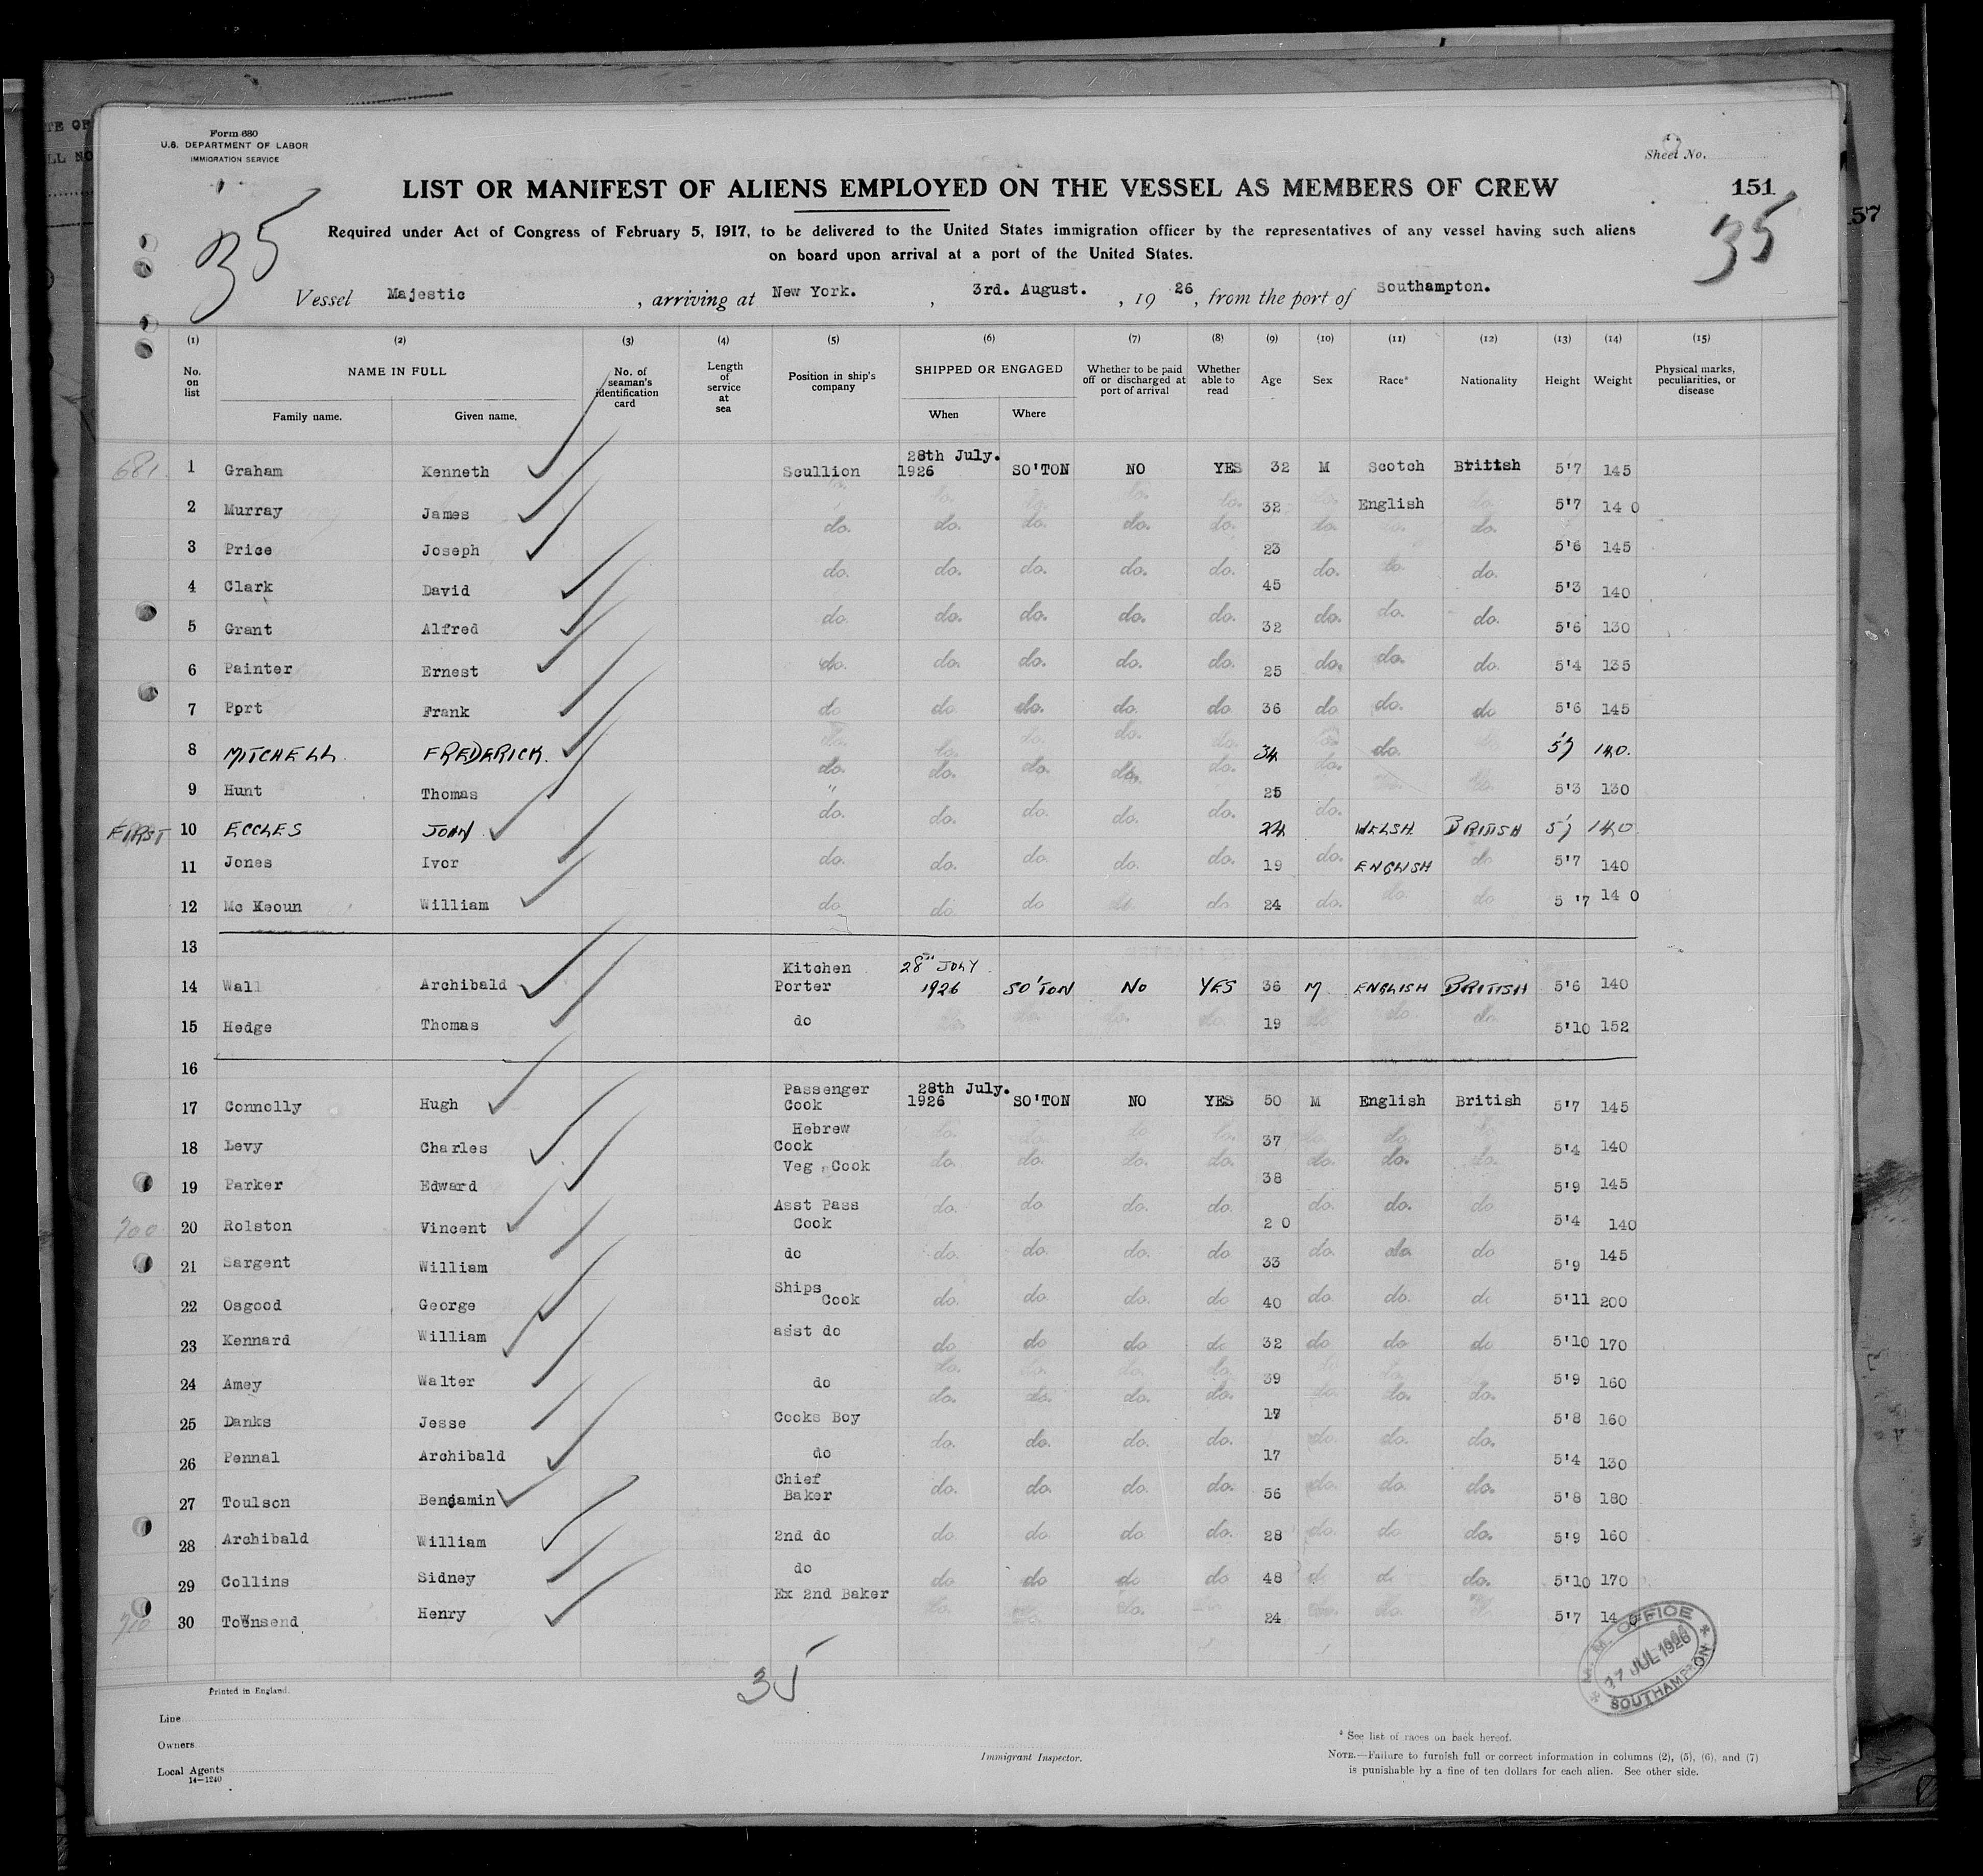 Form 680
U.S. DEPARTMENT OF LABOR
IMMIGRATION SERVICE
Sheet No.
LIST OR MANIFEST OF ALIENS EMPLOYED ON THE VESSEL AS MEMBERS OF CREW
151
35
35
57
Required under Act of Congress of February 5, 1917, to be delivered to the United States immigration officer by the representatives of any vessel having such aliens
on board upon arrival at a port of the United States.
Vessel Majestic , arriving at New York. , 3rd. August. , 19 26 , from the port of Southampton.
(1) (2) (3) (4) (5) (6) (7) (8) (9) (10) (11) (12) (13) (14) (15)
No. on list NAME IN FULL Family name. Given name. No. of seaman's identification card Length of service at sea Position in ship's company SHIPPED OR ENGAGED When Where Whether to be paid off or discharged at port of arrival Whether able to read Age Sex Race* Nationality Height Weight Physical marks, peculiarities, or disease
681 1 Graham Kenneth Scullion 28th July. 1926 SO'TON NO YES 32 M Scotch British 5'7 145
2 Murray James do. do. do. do. do. 32 do. English do. 5'7 14 0
3 Price Joseph do. do. do. do. do. 23 do. do. do. 5'6 145
4 Clark David do. do. do. do. do. 45 do. do. do. 5'3 140
5 Grant Alfred do. do. do. do. do. 32 do. do. do. 5'6 130
6 Painter Ernest do. do. do. do. do. 25 do. do. do. 5'4 135
7 Port Frank do do. do. do. do 36 do do. do 5'6 145
8 MITCHELL FREDERICK. do. do. do. do. do. 34 do. do. do. 5'7 140.
9 Hunt Thomas " 25 5'3 130
FIRST 10 ECCLES JOHN do. do. do. do. 24 do. WELSH BRITISH 5'7 140.
11 Jones Ivor do. do. do. do. do. 19 do. ENGLISH do 5'7 140
12 Mc Keoun William do do. do do do 24 do. do. do 5 '7 14 0
13
14 Wall Archibald Kitchen Porter 28th JULY 1926 SO'TON NO YES 36 M ENGLISH BRITISH 5'6 140
15 Hedge Thomas do do. do. do. do. 19 do do. do. 5'10 152
16
17 Connolly Hugh Passenger Cook 28th July. 1926 SO'TON NO YES 50 M English British 5'7 145
18 Levy Charles Hebrew Cook do. do. do do. 37 do. do. do. 5'4 140
19 Parker Edward Veg Cook do. do. do. do. 38 do. do. do. 5'9 145
700 20 Rolston Vincent Asst Pass Cook do. do do. do. 2 0 do. do. do 5'4 140
21 Sargent William do do. do. do. do 33 do. do do 5'9 145
22 Osgood George Ships Cook do. do. do. do 40 do. do. do 5'11 200
23 Kennard William asst do do do do. do 32 do do do 5'10 170
24 Amey Walter do do. do. do. do. 39 do. do. do. 5'9 160
25 Danks Jesse Cooks Boy 17 5'8 160
26 Pennal Archibald do do. do. do. do. 17 do. do. do. 5'4 130
27 Toulson Benjamin Chief Baker do. do. do. do. 56 do. do. do. 5'8 180
28 Archibald William 2nd do do do do do. 28 do. do do. 5'9 160
29 Collins Sidney do do do do do 48 do. 5'10 170
710 30 Townsend Henry Ex 2nd Baker do. do. do. 24 do. do. 5'7 14 0
35
M. M. OFFICE
17 JUL 1926
SOUTHAMPTON
Printed in England.
Line
Owners
Local Agents
14—1240
Immigrant Inspector.
* See list of races on back hereof.
NOTE.—Failure to furnish full or correct information in columns (2), (5), (6), and (7)
is punishable by a fine of ten dollars for each alien. See other side.